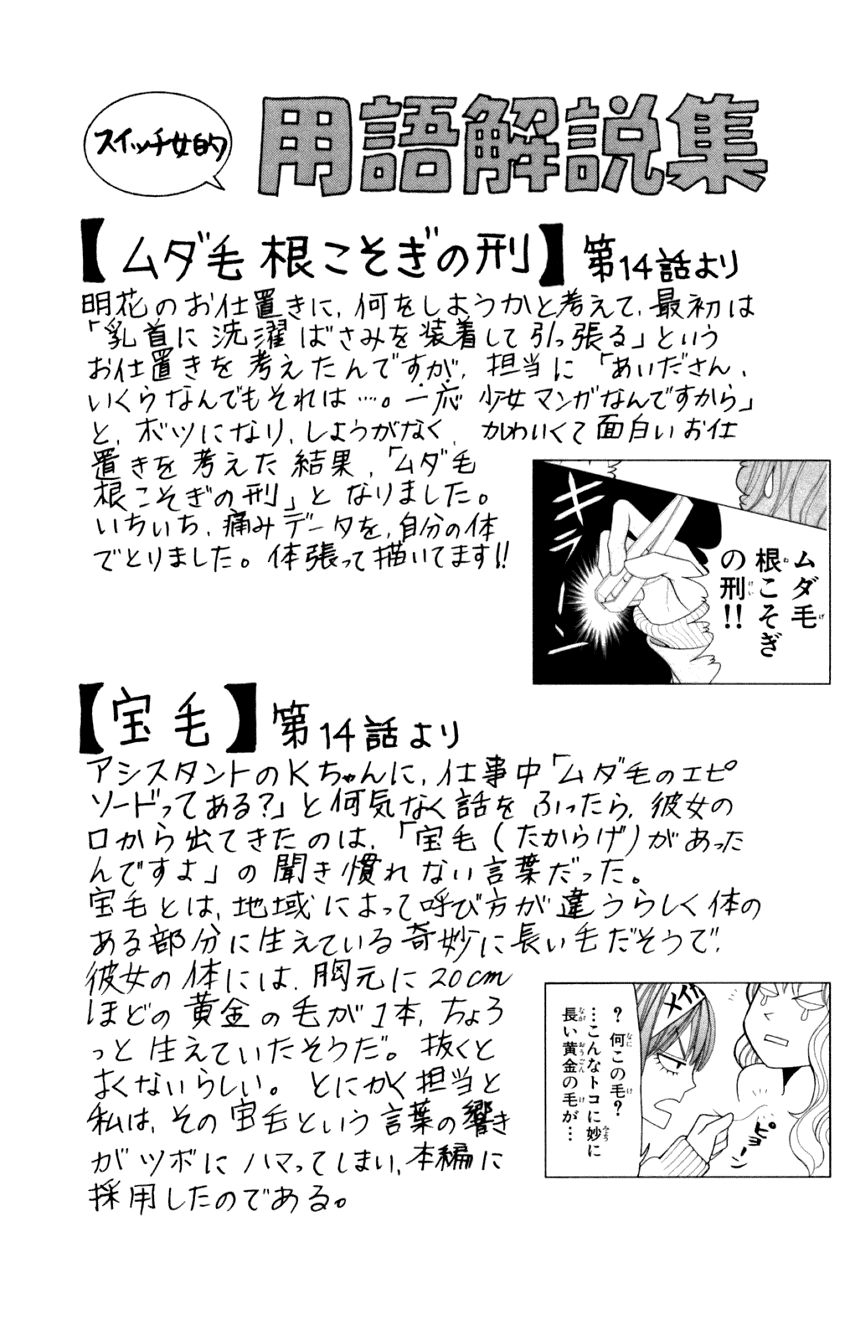 スイッチ女的
用語解説集
【ムダ毛根こそぎの刑】第14話より
明花のお仕置きに、何をしようかと考えて、最初は
「乳首に洗濯ばさみを装着して引っ張る」という
お仕置きを考えたんですが、担当に「あいださん、
いくらなんでもそれは…。一応少女マンガなんですから」
と、ボツになり、しょうがなく、かわいくて面白いお仕
置きを考えた結果、「ムダ毛
根こそぎの刑」となりました。
いちいち、痛みデータを、自分の体
でとりました。体張って描いてます!!
ムダ毛
根こそぎ
の刑!!
【宝毛】第14話より
アシスタントのKちゃんに、仕事中「ムダ毛のエピ
ソードってある?」と何気なく話をふったら、彼女の
口から出てきたのは、「宝毛(たからげ)があった
んですよ」の聞き慣れない言葉だった。
宝毛とは、地域によって呼び方が違うらしく体の
ある部分に生えている奇妙に長い毛だそうで、
彼女の体には、胸元に20cm
ほどの黄金の毛が1本、ちょろ
っと生えていたそうだ。抜くと
よくないらしい。とにかく担当と
私は、その宝毛という言葉の響き
がツボにハマってしまい、本編に
採用したのである。
?何この毛?
…こんなトコに妙に
長い黄金の毛が…
ピョーン